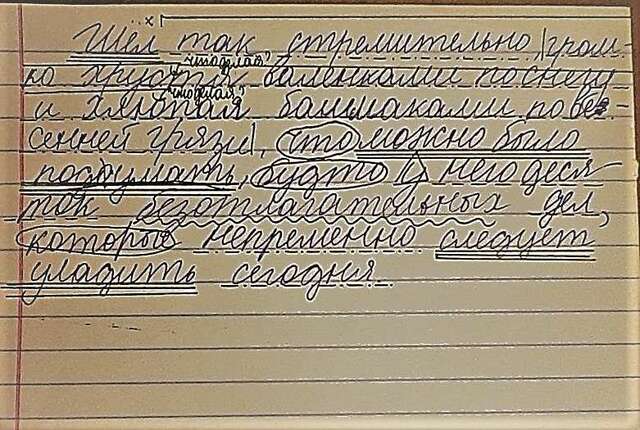 х
Шёл так стремительно, гром-
"что делая?"
ко хрустя валенками по снегу
"что делая?"
и хлюпая башмаками по ве-
сенней грязи, что можно было
подумать, будто у него деся-
ток безотлагательных дел,
которые непременно следует
уладить сегодня.